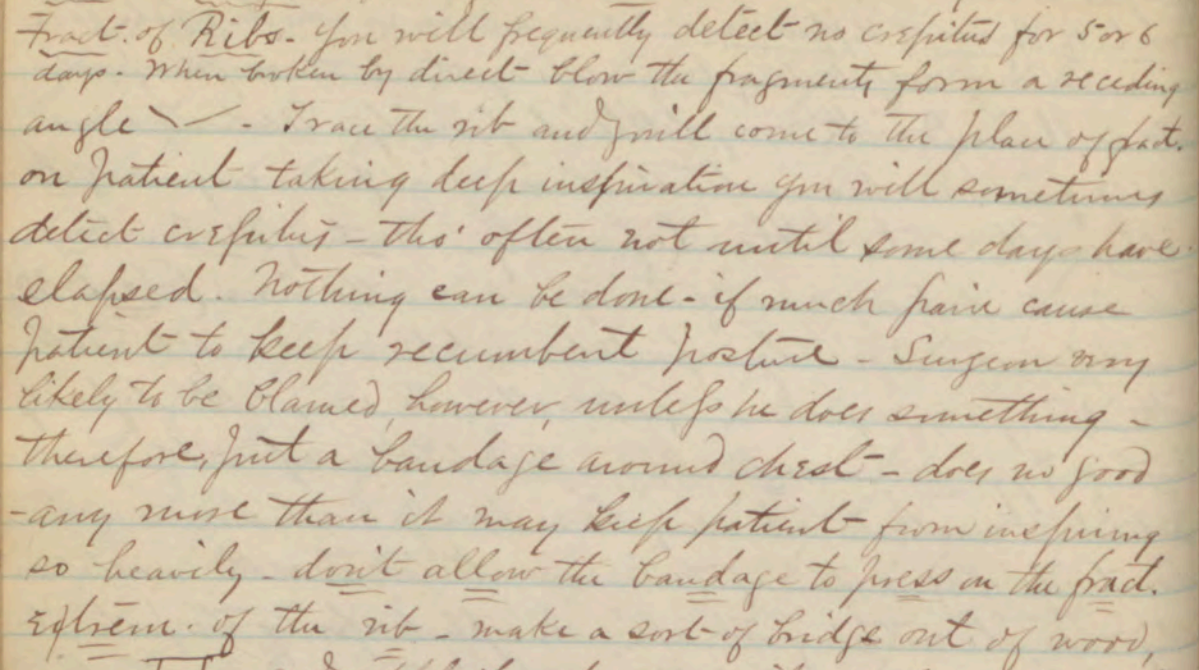 Fract. of Ribs - You will frequently detect no crepitus for 5 or 6
days. When broken by direct blow the fragments form a receding
angle - Trace the rib and you will come to the place of fract.
on patient taking deep inspiration you will sometimes
detect crepitus - tho' often not until some days have
elapsed. Nothing can be done - if much pain cause
patient to keep recumbent posture - Surgeon very
likely to be blamed, however, unless he does something -
therefore, put a bandage around chest - does no good
- any more than it may keep patient from inspiring
so heavily - don't allow the bandage to press on the fract.
extrem. of the rib - make a sort of bridge out of wood,